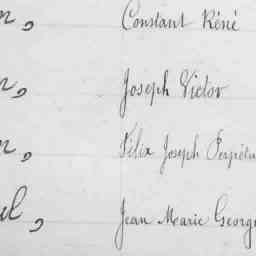 n, Constant Réné
n, Joseph Victor
n, Félix Joseph Perpétu
ul, Jean Marie George